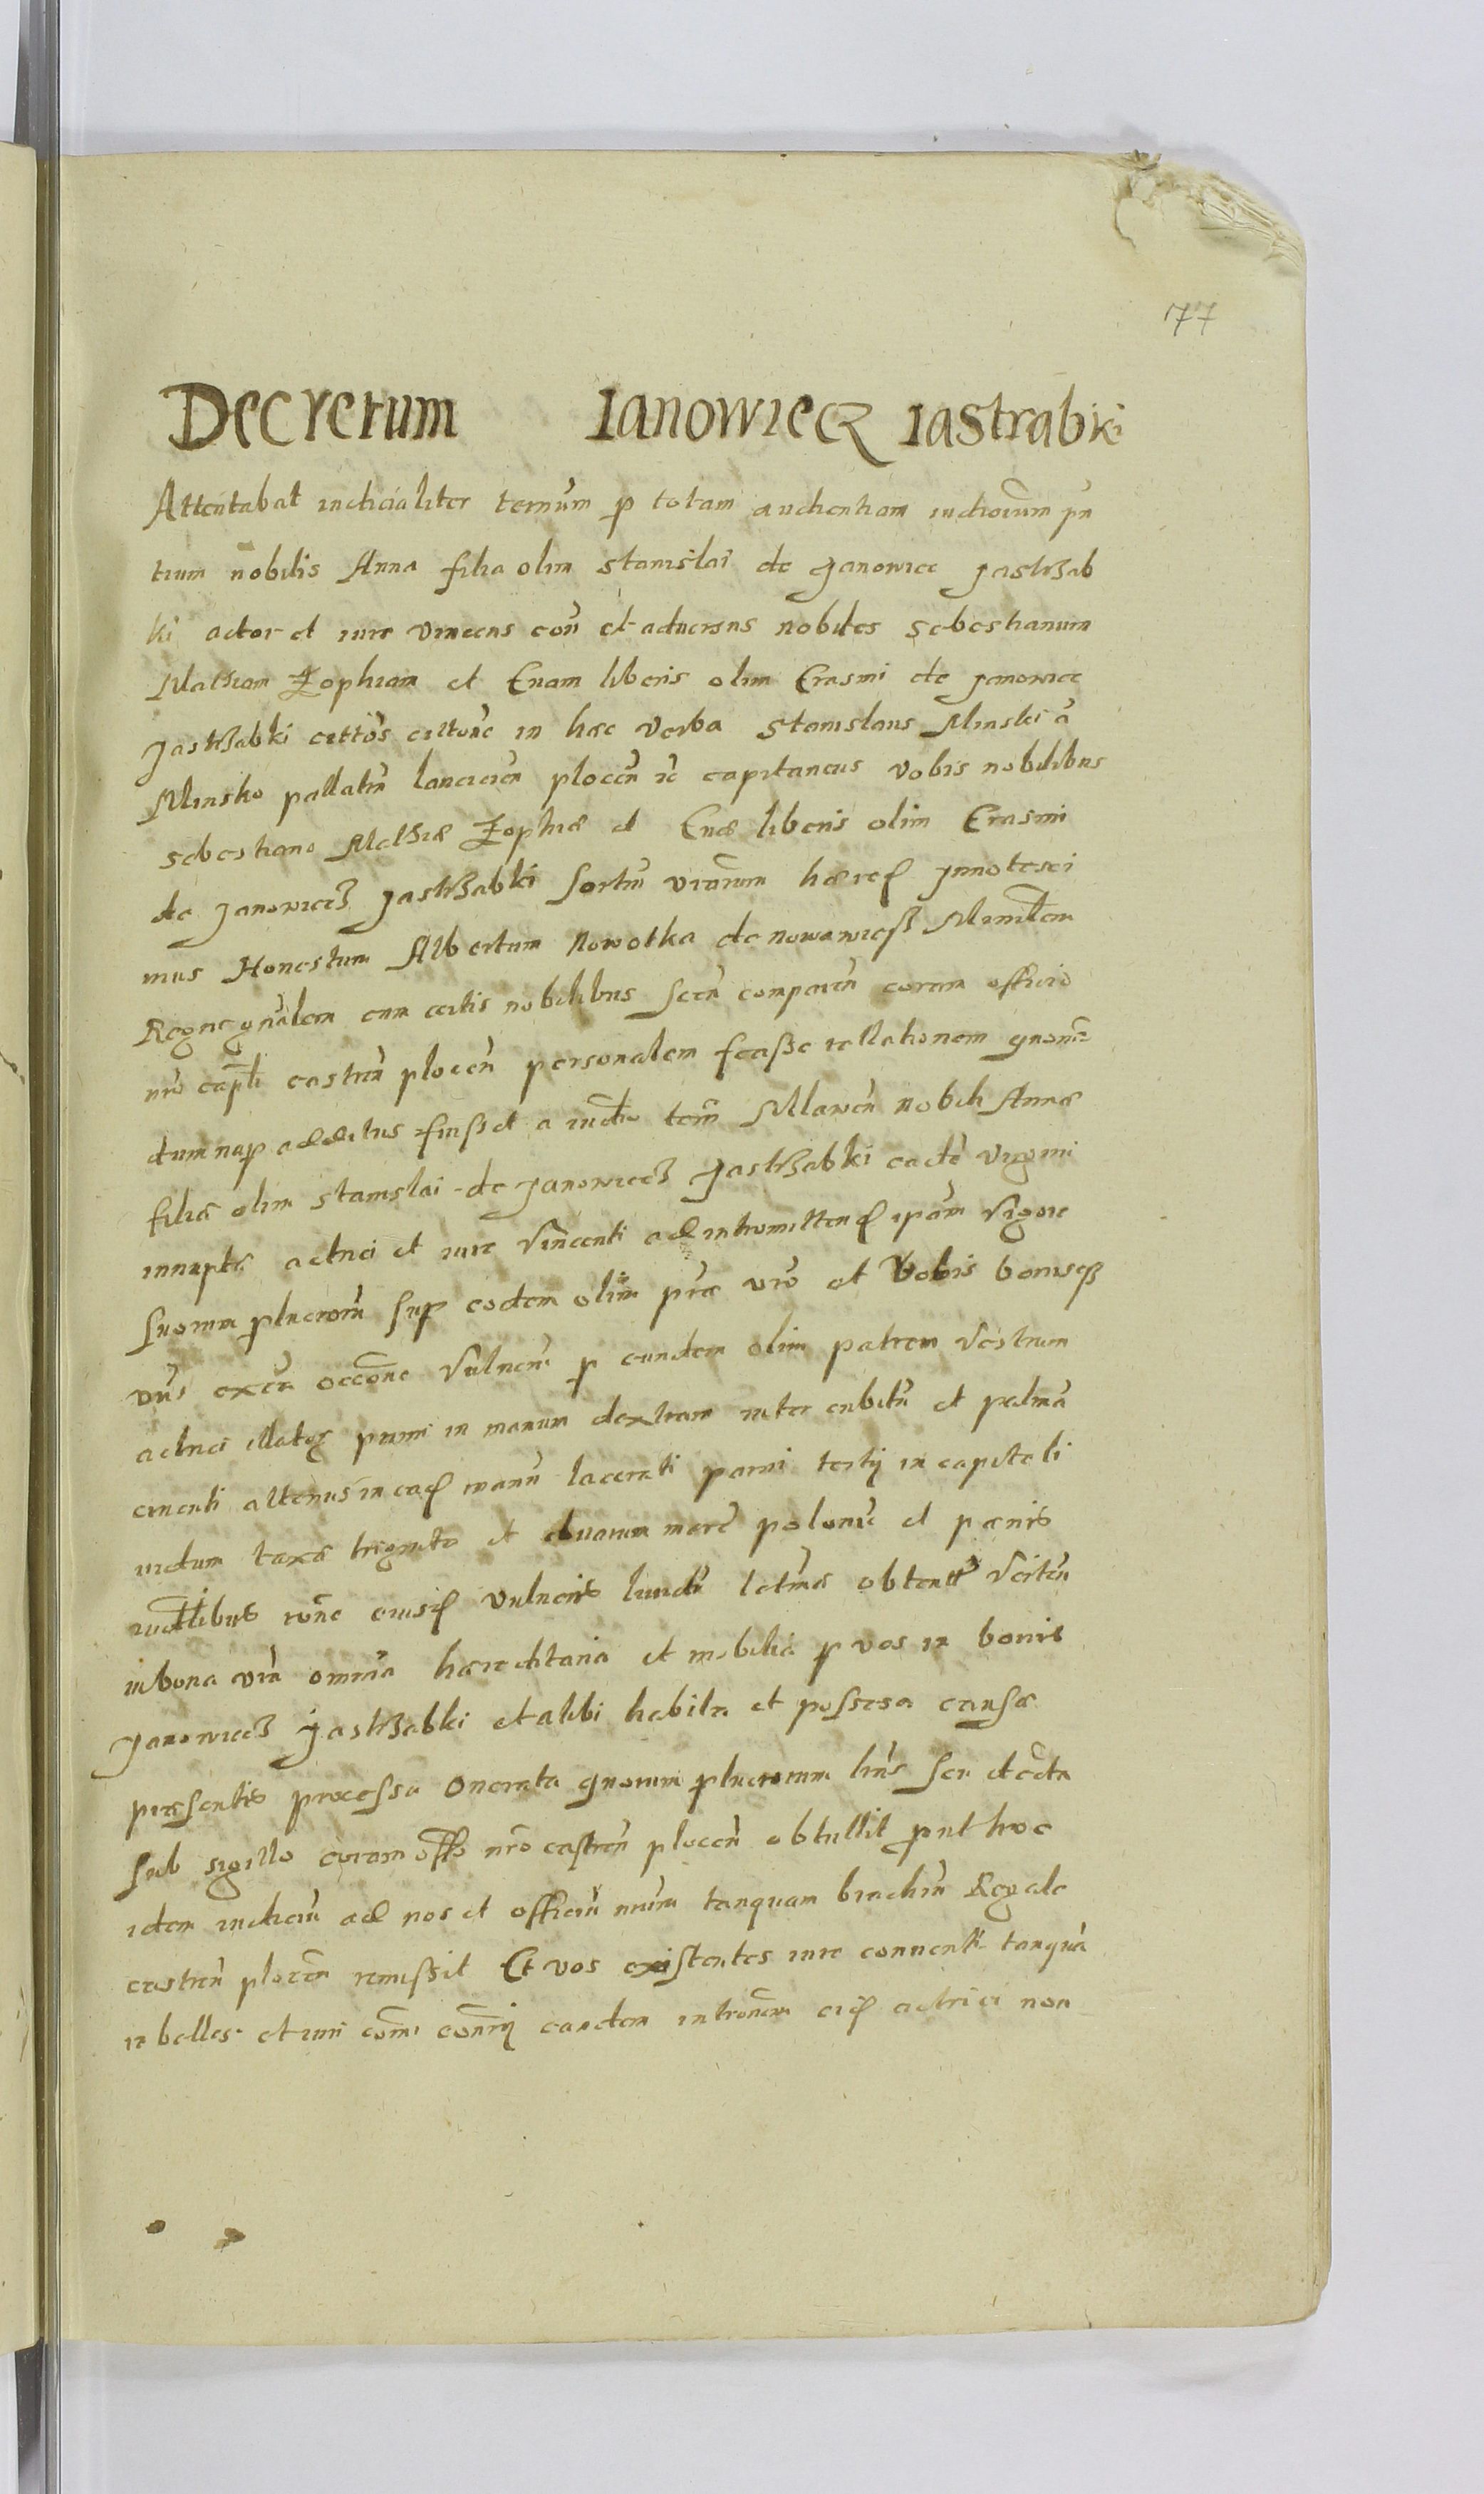 177
Decretum Ianowiecz Iastrabki
Attentabat iudicialiter terminũ p totam audientiam iudiciorum pñ
tium nobilis Anna filia olim Stanislai de Janowiec Jastrzab
ki actor et iure vincens con̄ et adversus nobiles Sebestianum
Mathiam Zophiam et Evam liberis olim Erasmi de Janowiec
Jastrzabki cittōs cittōne in hæc verba Stanislaus Minski à
Minsko pallatiñ lanciciēn plocēn ic capitaneus vobis nobilibus
Sebestiano Mathiæ Zophiæ et Evæ liberis olim Erasmi
de Janowiecz Jastrzabki sortiũ vrārum hæred Jnnotesci
mus Honestum Albertum Nowotka de nowawiess Ministem
Regnegñalem cum certis nobilibus secũ comparēn coram officio
nrō cap̄li castreñ plocēn personalem fecisse rellationem quomō
dum nup additus fuisset a iudō terr̄ Mlawēn nobili Annæ
filiæ olim Stanislai de Janowiecz Jastrzabki eadē virgini
innuptæ actrici et iure vincenti ad intromittend ipam vigore
suorum plucrorũ sup eodem olim prē vrō et Vobis bonisq
vrīs exēn occōne Vulnerũ p eundem olim patrem vestrum
actrici illator primi in manum dextram inter cubitũ et palmã
cruenti alterius in ead manũ lacerati parvi tertij in capite li
vidum taxæ triginta et duarum marc̄ polonic̄ et pænis
iudlibus rōne eiusd vulneris lividi letīmæ obtent̄ veritũ
in bona vrā omnia hæreditaria et mobilia p vos in bonis
Janowiecz Jastrzabki et alibi habita et possessa causæ
præsentis processa onerata quorum plucrorum lrās seu decrta
sub sigillo coram offō nrō castreñ plocēn obtullit prut hoc
idem iudiciũ ad nos et officiũ nrũm tanquam brachiũ Regale
castreñ plocēn remissit Et vos existentes iure convent̄ tanquã
rebelles et iuri cōmi cōnrij eandem introm̄nem eid actrici non